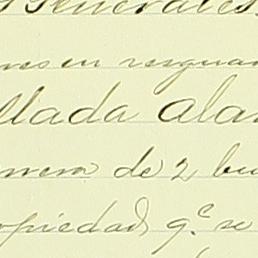 Generales.
res en resguar
llada alar
rrera de 2 bu
opiedad q.e se